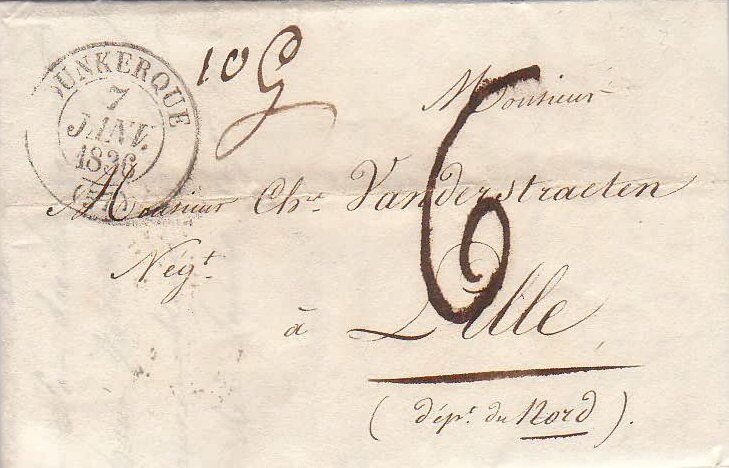 DUNKERQUE
7
JANV.
1836
(57)
10 G
6
Monsieur
Monsieur Chs. Vanderstraeten
Negt.
à Lille,
(dépt. du Nord).